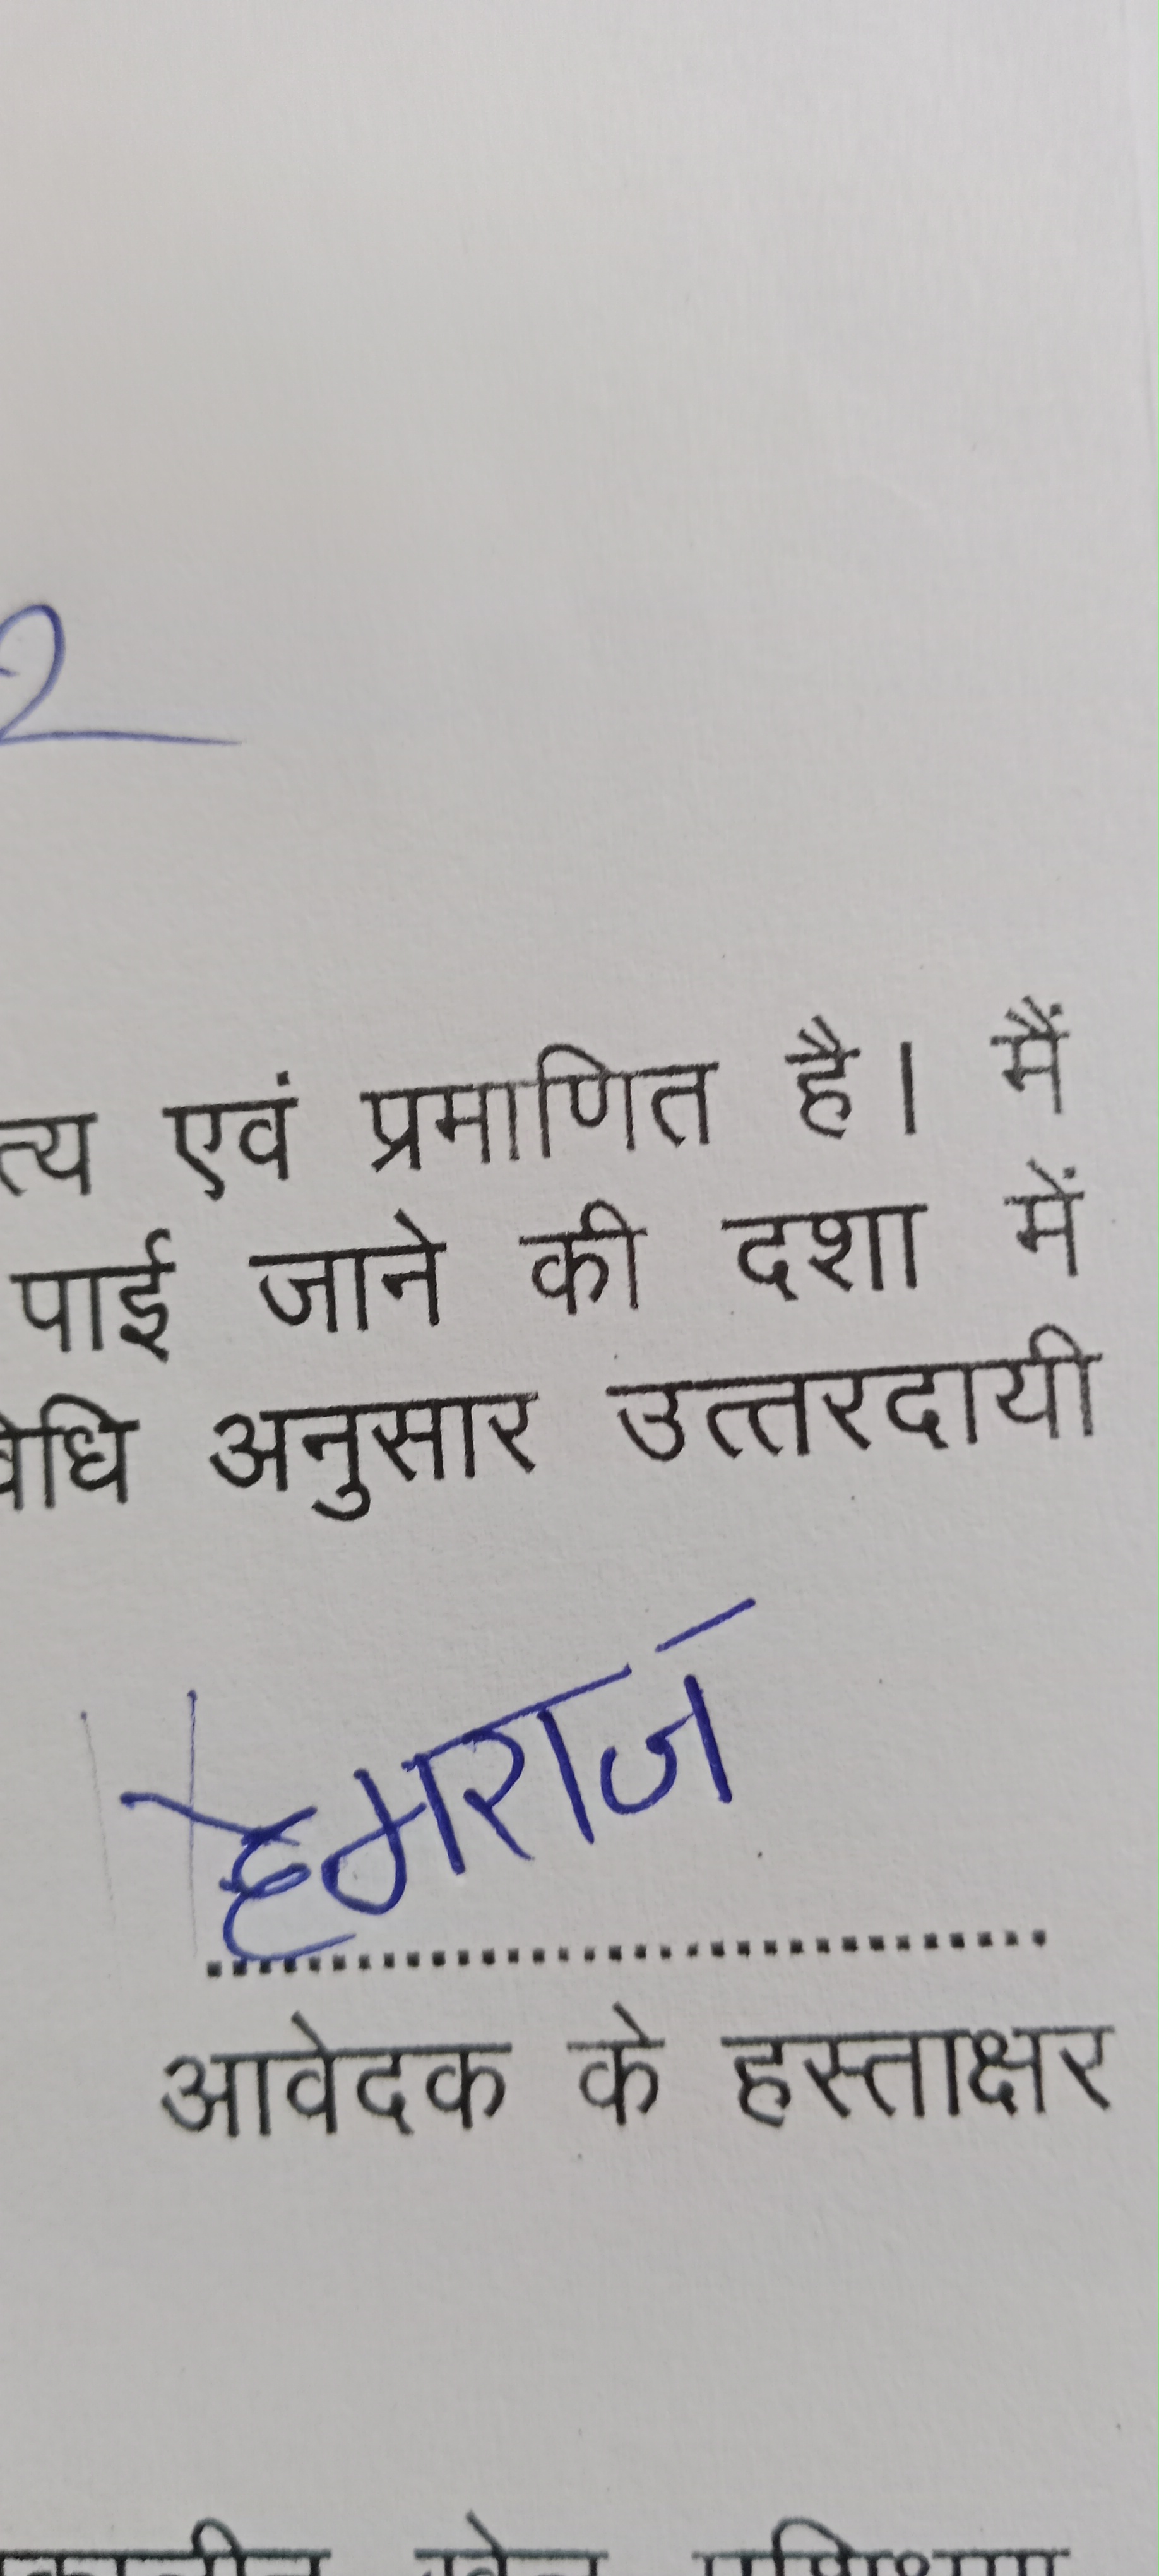 2
त्य एवं प्रमाणित है। मैं
पाई जाने की दशा में
वेधि अनुसार उत्तरदायी
हेमराज
आवेदक के हस्ताक्षर